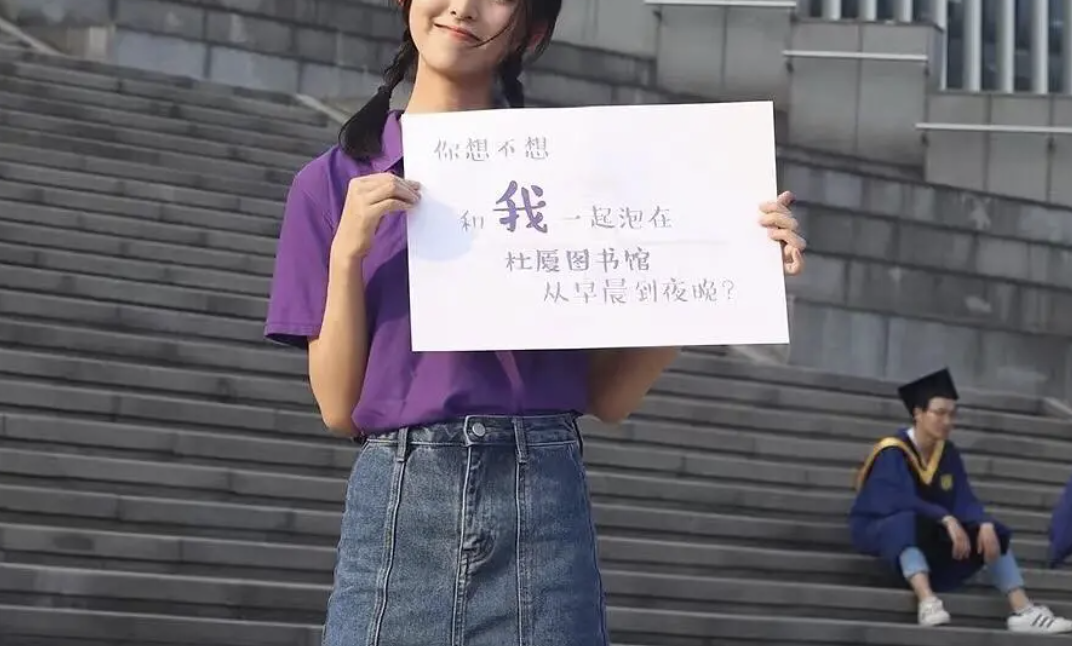 你想不想
和我一起泡在
杜厦图书馆
从早晨到夜晚?